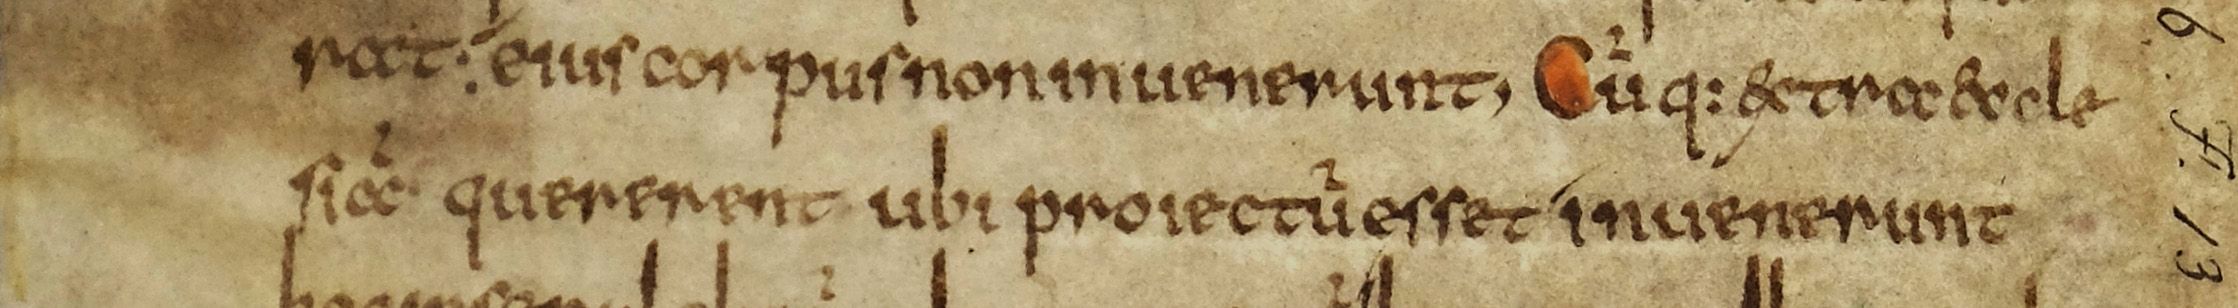 rat: eius corpus non inuenerunt, Cūq: extra eccle
siā quererent ubi proiectū esset inuenerunt
6. F. 13